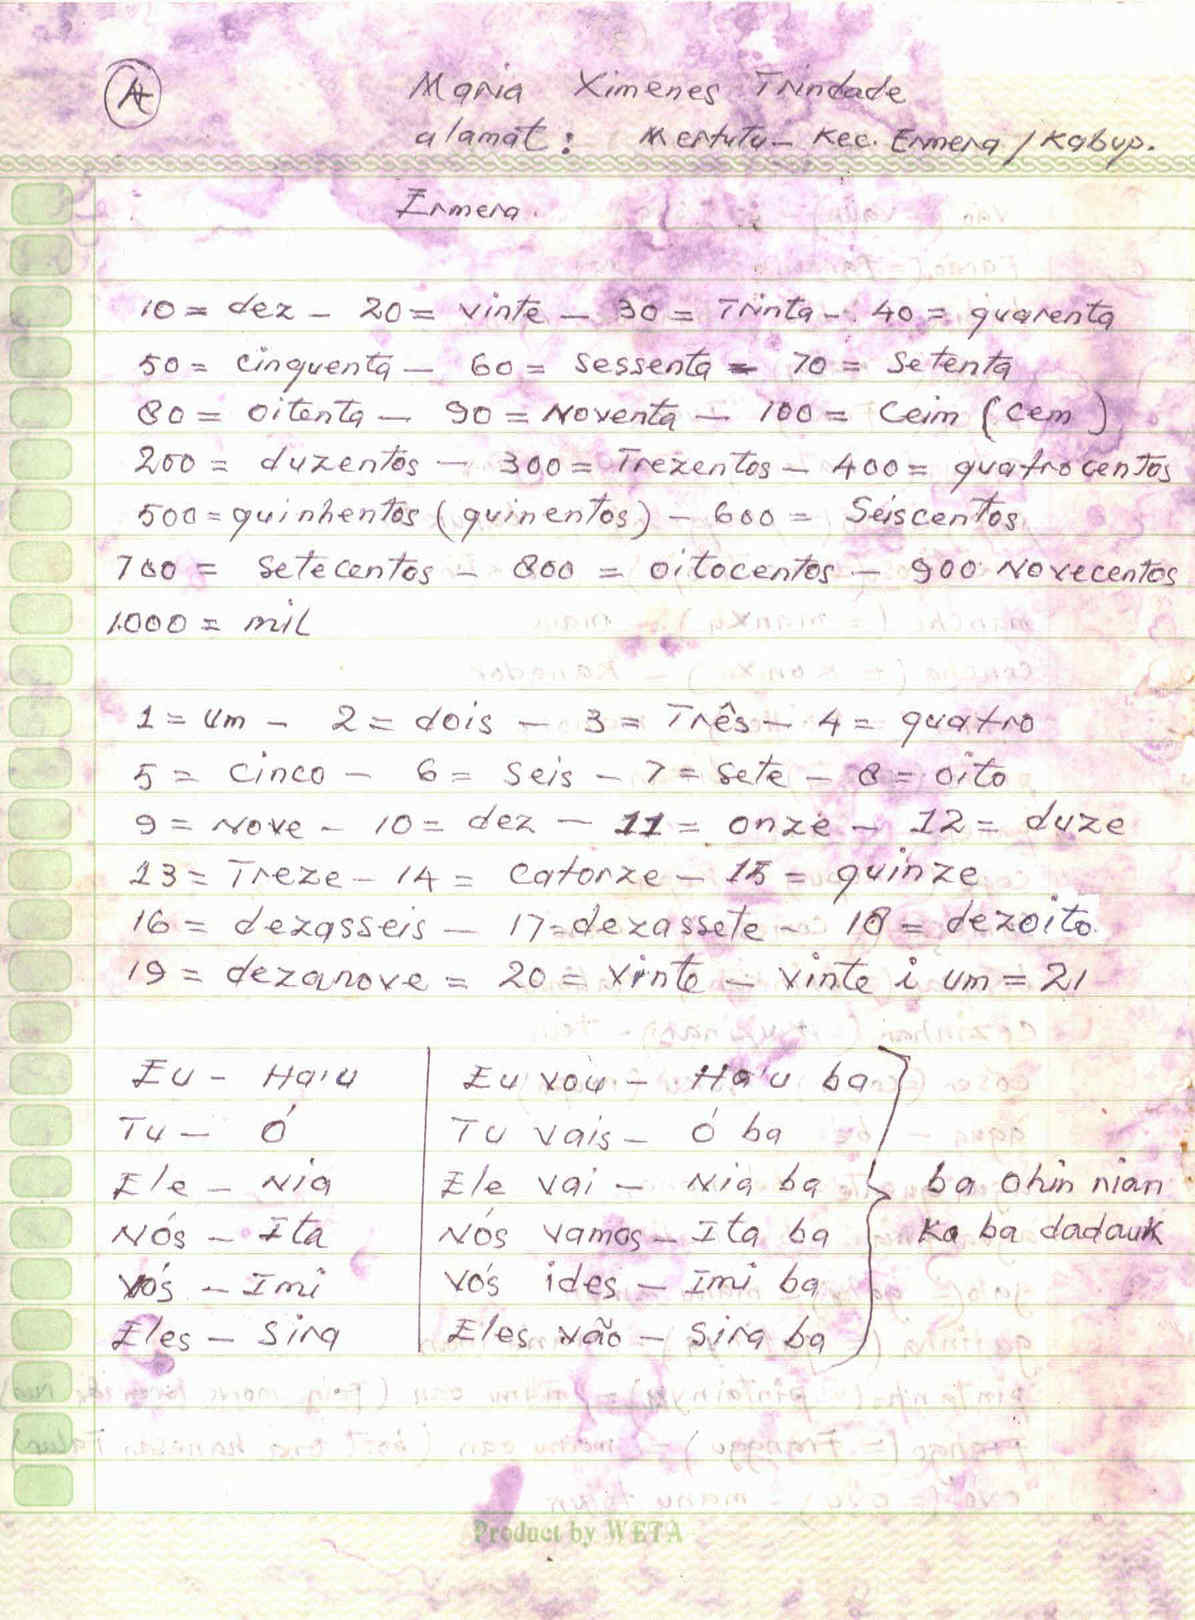 A Maria Ximenes Trindade
alamat: Mertutu - Kec. Ermera / Kabup.
Ermera.
10 = dez - 20 = vinte - 30 = Trinta - 40 = quarenta
50 = cinquenta - 60 = sessenta - 70 = setenta
80 = oitenta - 90 = Noventa - 100 = Ceim (cem)
200 = duzentos - 300 = Trezentos - 400 = quatrocentos
500 = quinhentos (quinentos) - 600 = Seiscentos
700 = setecentos - 800 = oitocentos - 900 Novecentos
1.000 = mil
1 = um - 2 = dois - 3 = Três - 4 = quatro
5 = cinco - 6 = seis - 7 = sete - 8 = oito
9 = nove - 10 = dez - 11 = onze - 12 = duze
13 = Treze - 14 = catorze - 15 = quinze
16 = dezasseis - 17 = dezassete - 18 = dezoito.
19 = dezanove = 20 = vinte - vinte i um = 21
Eu - Ha'u Eu vou - Ha'u ba
Tu - Ó Tu vais - Ó ba
Ele - Nia Ele vai - Nia ba ba ohin nian
Nós - Ita Nós vamos - Ita ba Ka ba dadauk
Vós - Imi Vós ides - Imi ba
Eles - Sira Eles vão - Sira ba
Product by WETA